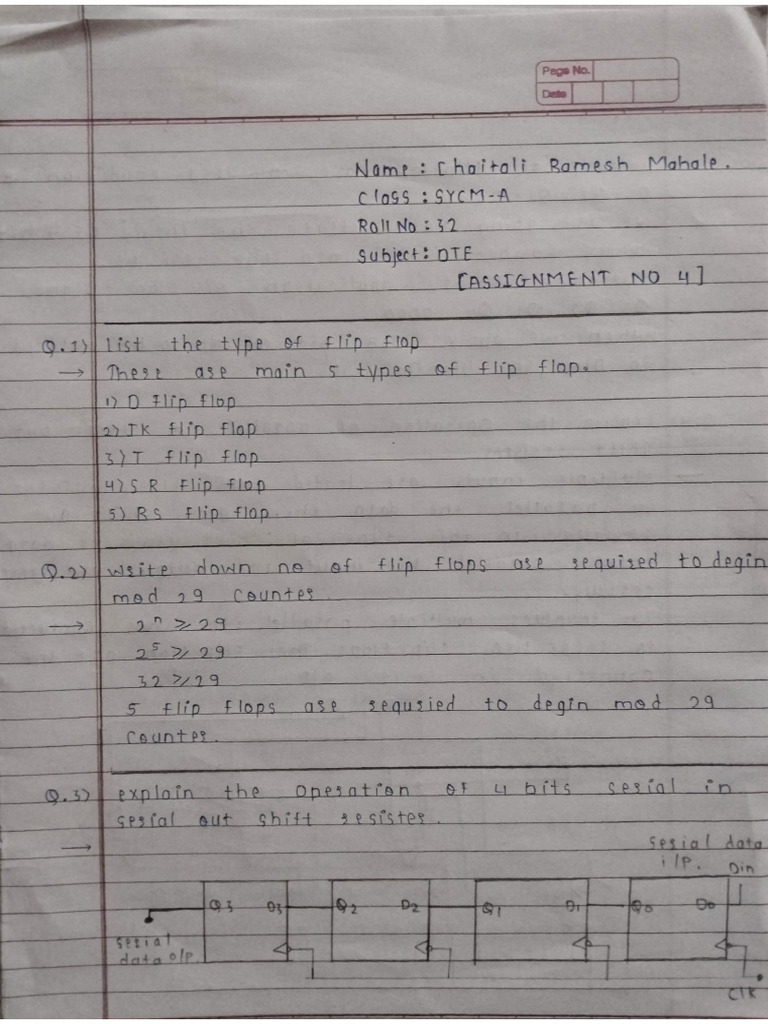 Page No.
Date
Name : Chaitali Ramesh Mahale.
Class : SYCM-A
Roll No : 32
Subject : DTE
[ASSIGNMENT NO 4]
Q.1) List the type of flip flop
→ There are main 5 types of flip flop.
1) D flip flop
2) JK flip flop
3) T flip flop
4) S R flip flop
5) RS flip flop
Q.2) write down no of flip flops are required to degin
mod 29 counter
→ 2ⁿ ≥ 29
2⁵ ≥ 29
32 ≥ 29
5 flip flops are requried to degin mod 29
counter.
Q.3) explain the operation of 4 bits serial in
serial out shift resister.
→
serial data
i/p. Din
Q3 D3 Q2 D2 Q1 D1 Q0 D0
serial
data o/p.
Clk